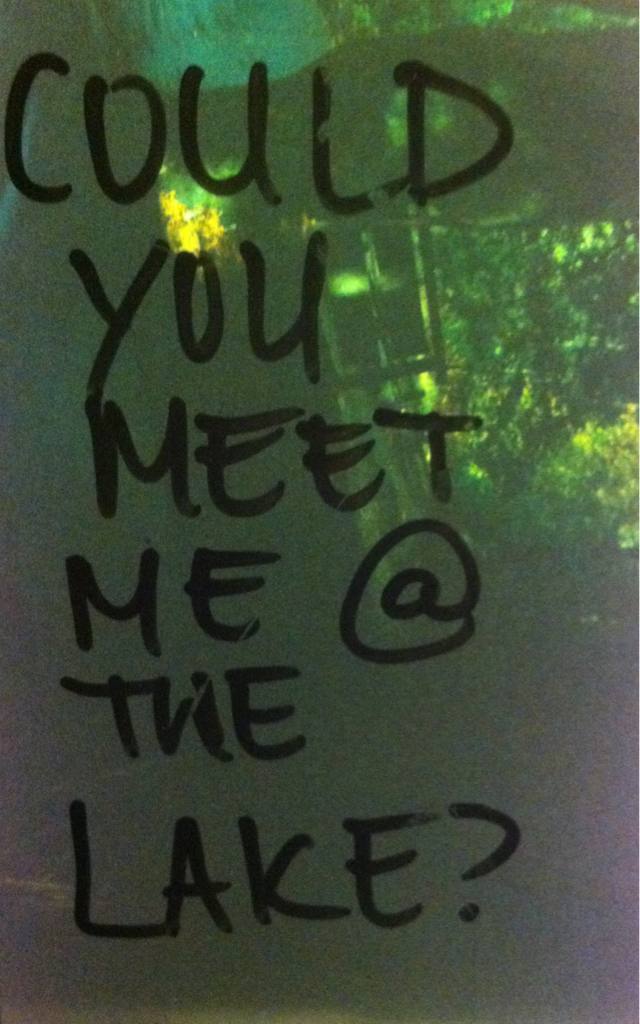 COULD
YOU
MEET
ME @
THE
LAKE?